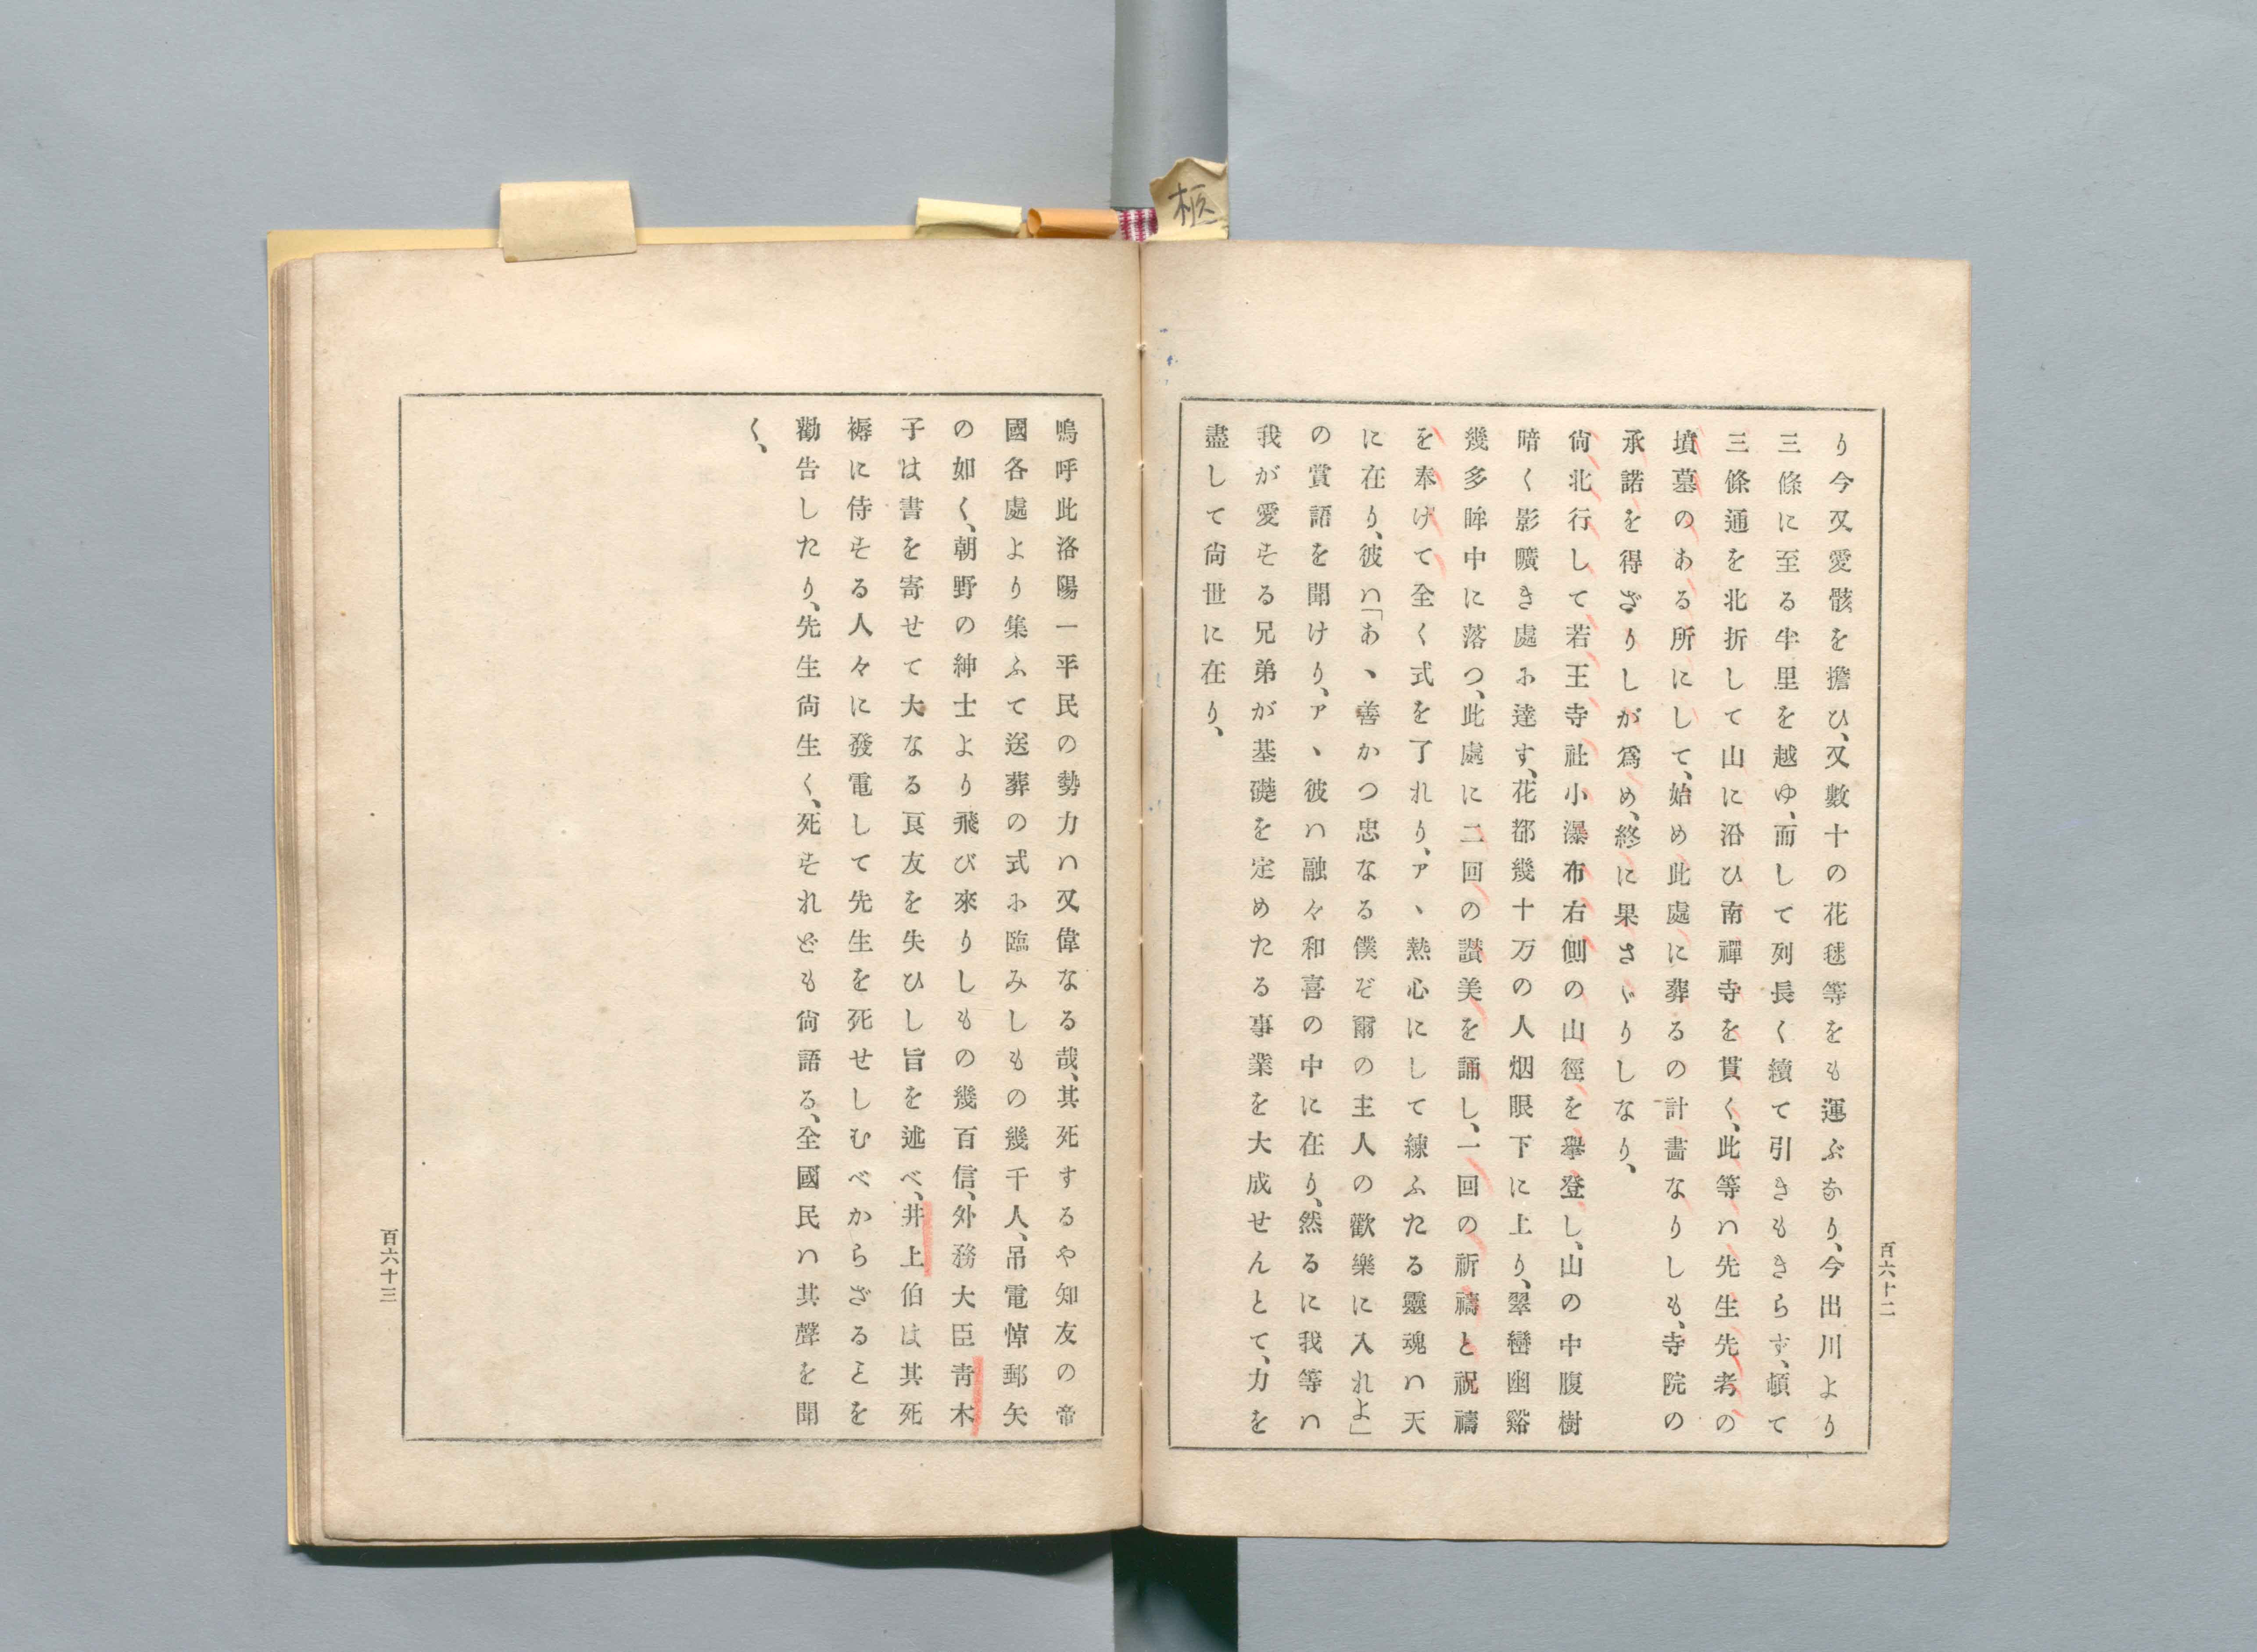 柩
り今又愛骸を擔ひ、又數十の花毬等をも運ぶなり、今出川より
三條に至る半里を越ゆ、而して列長く續て引きもきらず、頓て
三條通を北折して山に沿ひ南禪寺を貫く、此等ハ先生先考の
墳墓のある所にして、始め此處に葬るの計畵なりしも、寺院の
承諾を得ざりしが爲め、終に果さゞりしなり、
尙北行して若王寺社小瀑布右側の山徑を攀登し、山の中腹樹
暗く影曠き處に達す、花都幾十万の人烟眼下に上り、翠巒幽谿
幾多眸中に落つ、此處に二回の讃美を誦し、一回の祈禱と祝禱
を奉けて全く式を了れり、アヽ熱心にして練ふたる靈魂ハ天
に在り、彼ハ「あヽ善かつ忠なる僕ぞ爾の主人の歡樂に入れよ」
の賞語を聞けり、アヽ彼ハ融々和喜の中に在り、然るに我等ハ
我が愛する兄弟が基礎を定めたる事業を大成せんとて、力を
盡して尙世に在り、
百六十二
嗚呼此洛陽一平民の勢力ハ又偉なる哉、其死するや知友の帝
國各處より集ふて送葬の式に臨みしもの幾千人、吊電悼郵矢
の如く、朝野の紳士より飛び來りしもの幾百信、外務大臣靑木
子は書を寄せて大なる良友を失ひし旨を述べ、井上伯は其死
褥に侍する人々に發電して先生を死せしむべからざることを
勸告したり、先生尙生く、死すれども尙語る、全國民ハ其聲を聞
く、
百六十三